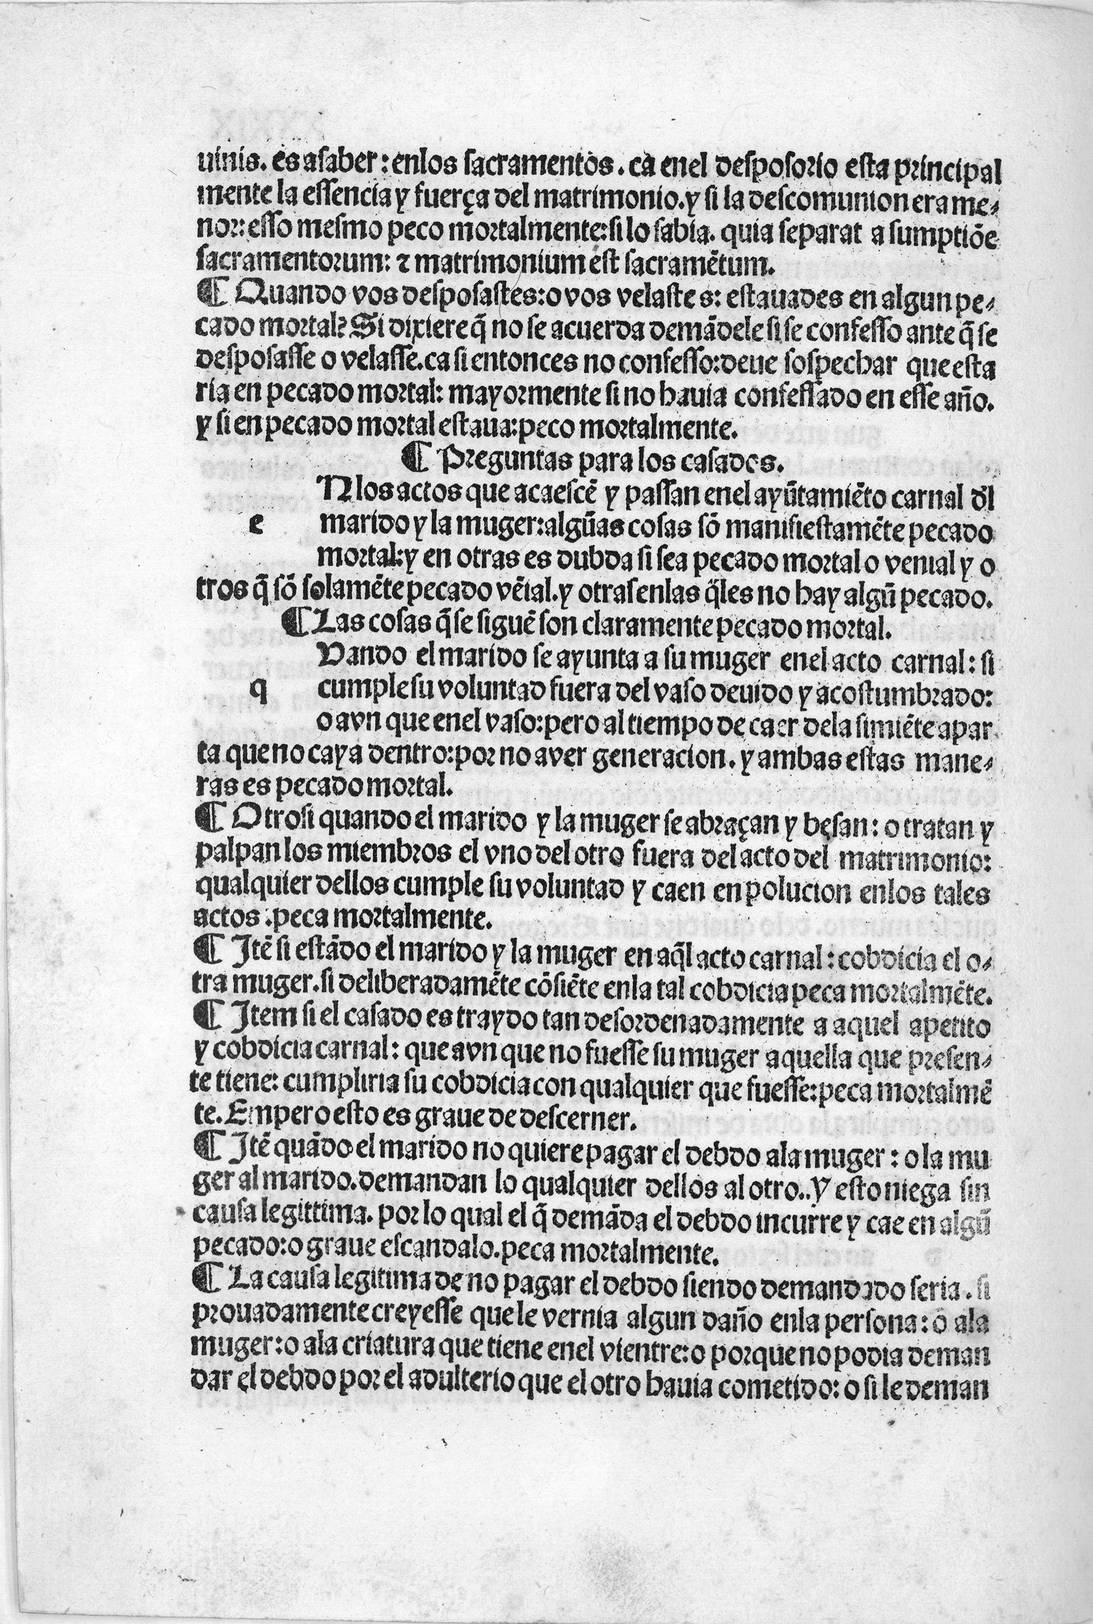 uinis. es a saber: enlos sacramentos. ca enel desposorio esta principal
mente la essencia y fuerça del matrimonio. y si la descomunion era me-
nor: esso mesmo peco mortalmente: si lo sabia. quia separat a sumptiõe
sacramentorum: ⁊ matrimonium est sacramẽtum.
¶ Quando vos desposastes: o vos velastes: estauades en algun pe-
cado mortal? Si dixiere q̃ no se acuerda demãdele si se confesso ante q̃ se
desposasse o velasse. ca si entonces no confesso: deue sospechar que esta
ria en pecado mortal: mayormente si no hauia confessado en esse año.
y si en pecado mortal estaua: peco mortalmente.
¶ Preguntas para los casados.
Nlos actos que acaescẽ y passan enel ayũtamiẽto carnal d̃l
e marido y la muger: algũas cosas sõ manifiestamẽte pecado
mortal: y en otras es dubda si sea pecado mortal o venial y o
tros q̃ sõ solamẽte pecado vẽial. y otras enlas q̃les no hay algũ pecado.
¶ Las cosas q̃ se siguẽ son claramente pecado mortal.
Vando el marido se ayunta a su muger enel acto carnal: si
q cumple su voluntad fuera del vaso deuido y acostumbrado:
o avn que enel vaso: pero al tiempo de caer dela simiẽte apar
ta que no caya dentro: por no aver generacion. y ambas estas mane-
ras es pecado mortal.
¶ Otrosi quando el marido y la muger se abraçan y besan: o tratan y
palpan los miembros el vno del otro fuera del acto del matrimonio:
qualquier dellos cumple su voluntad y caen en polucion enlos tales
actos. peca mortalmente.
¶ Itẽ si estãdo el marido y la muger en aq̃l acto carnal: cobdicia el o-
tra muger. si deliberadamẽte cõsiẽte enla tal cobdicia peca mortalmẽte.
¶ Item si el casado es traydo tan desordenadamente a aquel apetito
y cobdicia carnal: que avn que no fuesse su muger aquella que presen-
te tiene: cumpliria su cobdicia con qualquier que fuesse: peca mortalmẽ
te. Empero esto es graue de descerner.
¶ Itẽ quãdo el marido no quiere pagar el debdo ala muger: o la mu
ger al marido. demandan lo qualquier dellos al otro.. Y esto niega sin
causa legittima. por lo qual el q̃ demãda el debdo incurre y cae en algũ
pecado: o graue escandalo. peca mortalmente.
¶ La causa legitima de no pagar el debdo siendo demandado seria. si
prouadamente creyesse que le vernia algun daño enla persona: o ala
muger: o ala criatura que tiene enel vientre: o porque no podia deman
dar el debdo por el adulterio que el otro hauia cometido: o si le deman